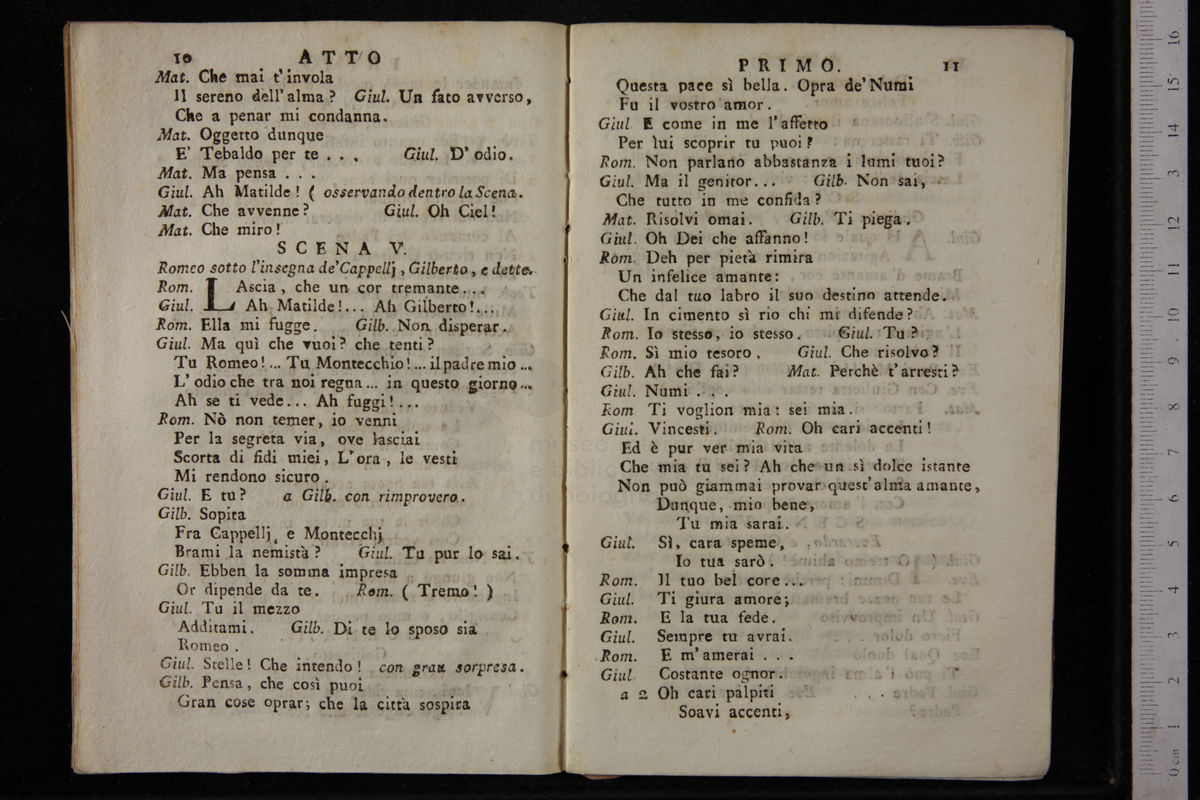 10 ATTO
Mat. Che mai t'invola
Il sereno dell'alma? Giul. Un fato avverso,
Che a penar mi condanna.
Mat. Oggetto dunque
E' Tebaldo per te . . . Giul. D' odio.
Mat. Ma pensa . . .
Giul. Ah Matilde! ( osservando dentro la Scena.
Mat. Che avvenne? Giul. Oh Ciel!
Mat. Che miro!
SCENA V.
Romeo sotto l'insegna de' Cappellj, Gilberto, e dette.
Rom. LAscia, che un cor tremante...
Giul. Ah Matilde!... Ah Gilberto!...
Rom. Ella mi fugge. Gilb. Non disperar.
Giul. Ma quì che vuoi? che tenti?
Tu Romeo!... Tu Montecchio!... il padre mio ...
L' odio che tra noi regna... in questo giorno...
Ah se ti vede... Ah fuggi!...
Rom. Nò non temer, io venni
Per la segreta via, ove lasciai
Scorta di fidi miei, L'ora, le vesti
Mi rendono sicuro.
Giul. E tu? a Gilb. con rimprovero.
Gilb. Sopita
Fra Cappellj, e Montecchj
Brami la nemistà? Giul. Tu pur lo sai.
Gilb. Ebben la somma impresa
Or dipende da te. Rom. ( Tremo! )
Giul. Tu il mezzo
Additami. Gilb. Di te lo sposo sia
Romeo.
Giul. Stelle! Che intendo! con gran sorpresa.
Gilb. Pensa, che così puoi
Gran cose oprar; che la città sospira
PRIMO. 11
Questa pace sì bella. Opra de' Numi
Fu il vostro amor.
Giul. E come in me l'affetto
Per lui scoprir tu puoi?
Rom. Non parlano abbastanza i lumi tuoi?
Giul. Ma il genitor... Gilb. Non sai,
Che tutto in me confida?
Mat. Risolvi omai. Gilb. Ti piega.
Giul. Oh Dei che affanno!
Rom. Deh per pietà rimira
Un infelice amante:
Che dal tuo labro il suo destino attende.
Giul. In cimento sì rio chi mi difende?
Rom. Io stesso, io stesso. Giul. Tu?
Rom. Sì mio tesoro. Giul. Che risolvo?
Gilb. Ah che fai? Mat. Perchè t'arresti?
Giul. Numi . . .
Rom Ti voglion mia: sei mia.
Giul. Vincesti. Rom. Oh cari accenti!
Ed è pur ver mia vita
Che mia tu sei? Ah che un sì dolce istante
Non può giammai provar quest'alma amante,
Dunque, mio bene,
Tu mia sarai.
Giul. Sì, cara speme,
Io tua sarò.
Rom. Il tuo bel core...
Giul. Ti giura amore;
Rom. E la tua fede.
Giul. Sempre tu avrai.
Rom. E m'amerai . . .
Giul Costante ognor.
a 2 Oh cari palpiti
Soavi accenti,